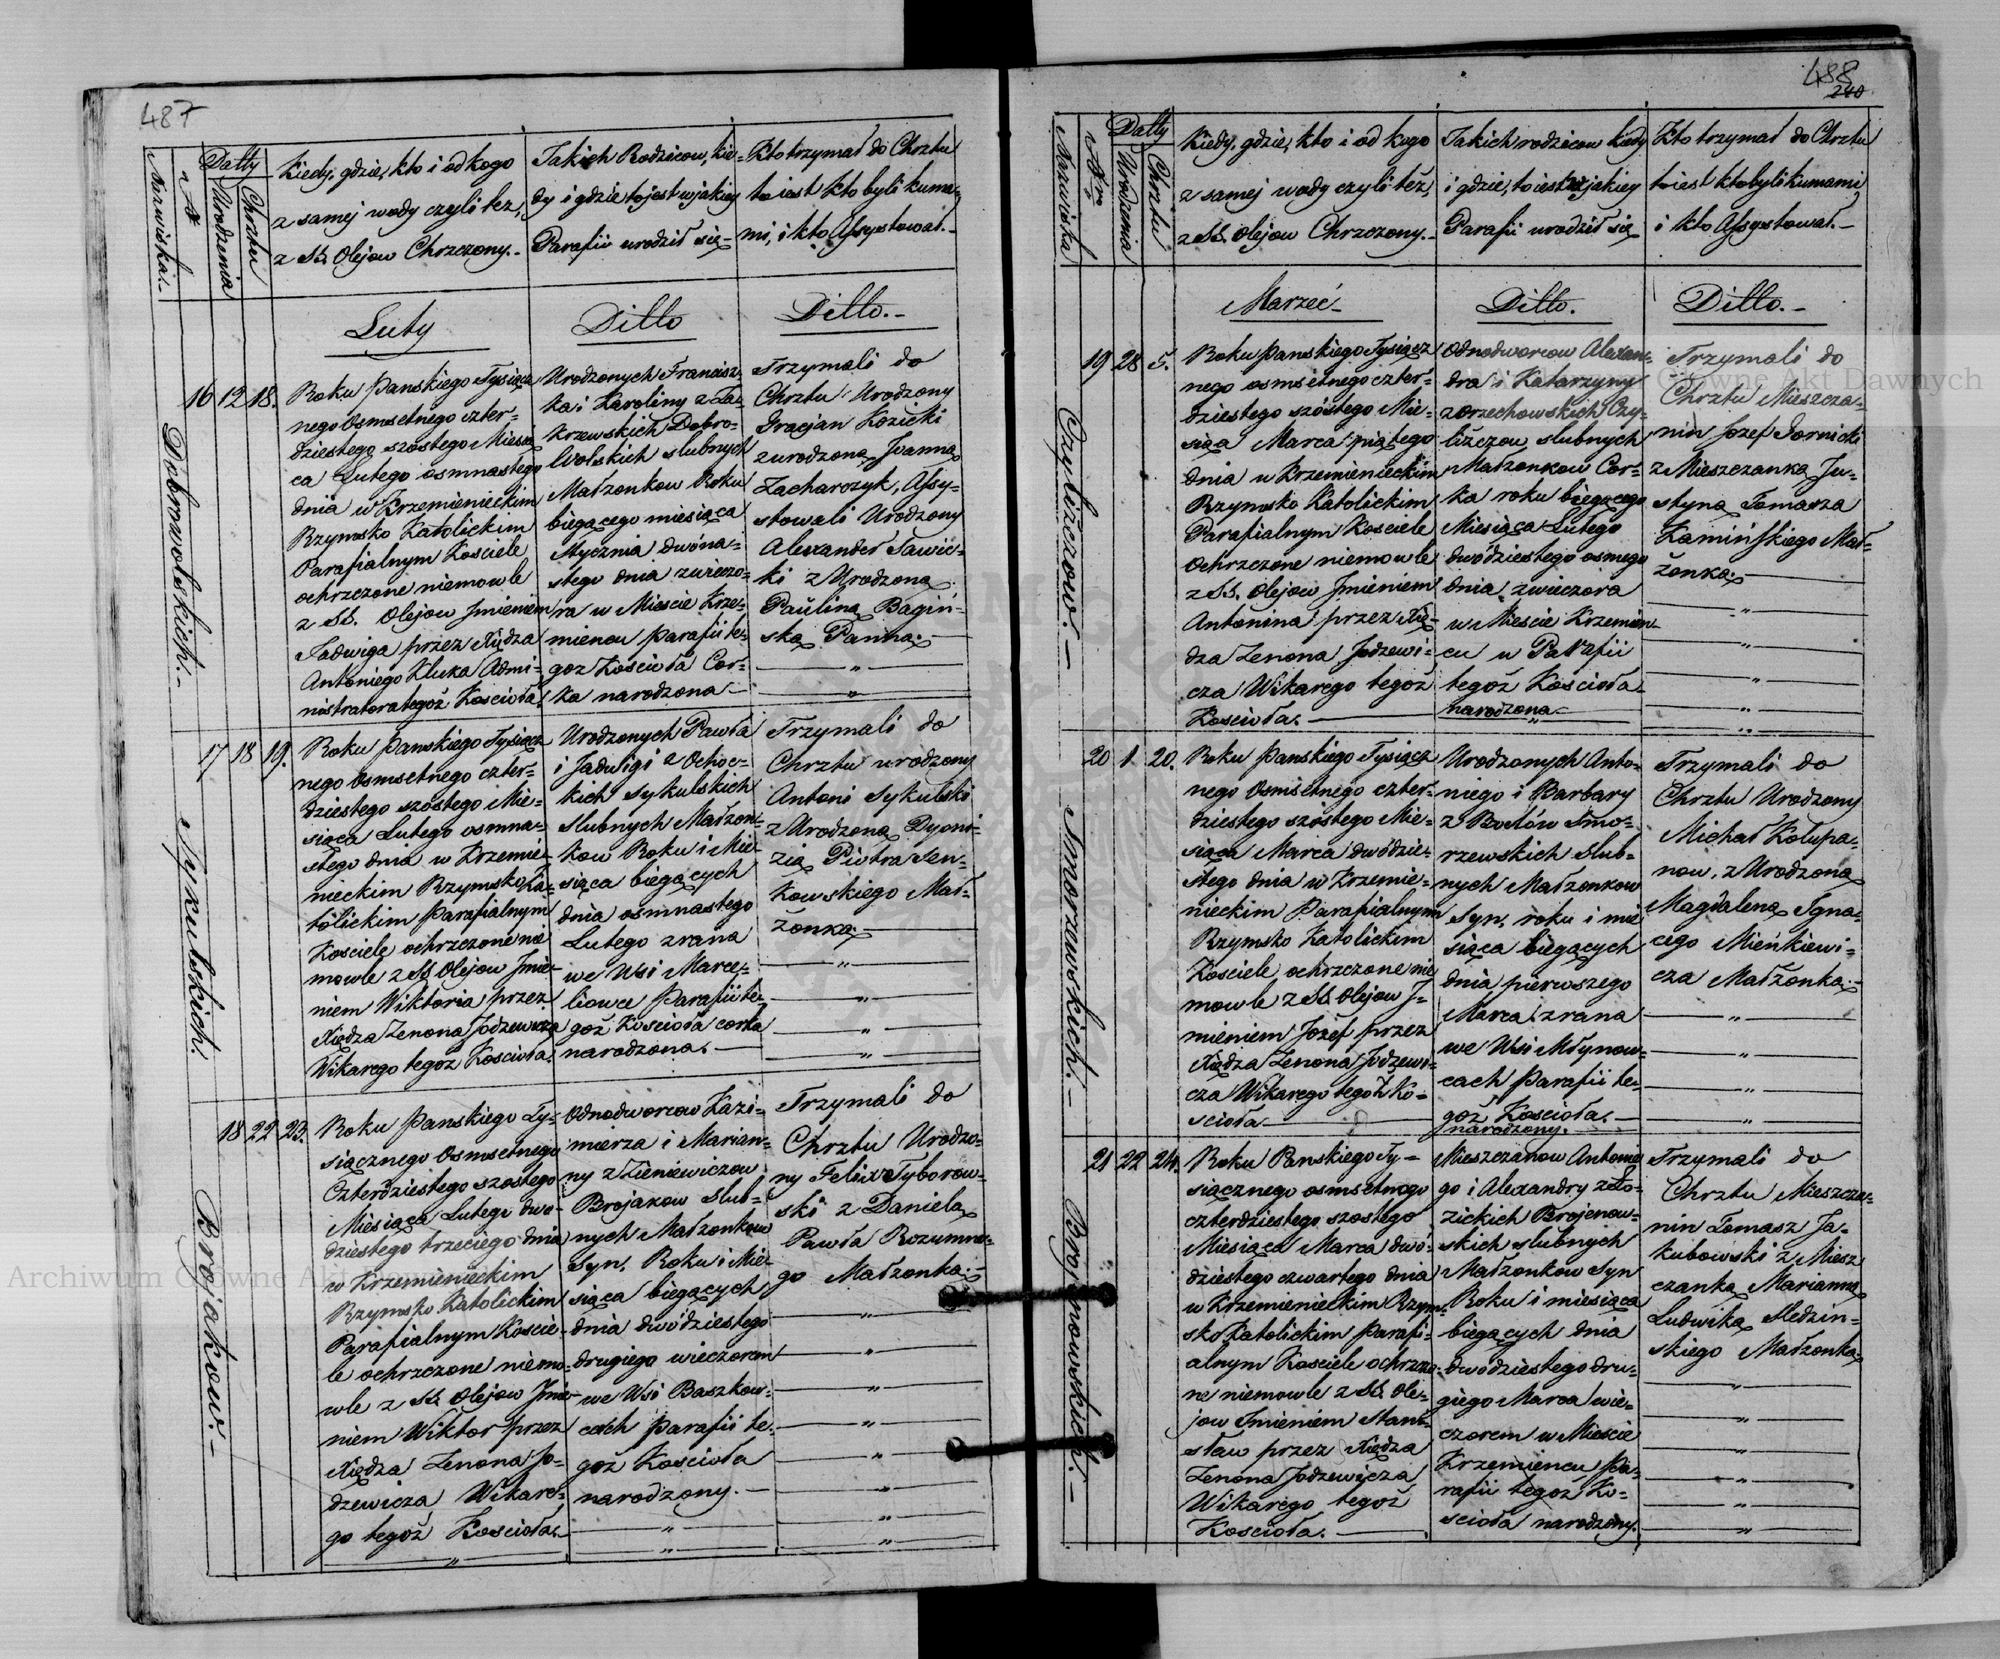 487
Nazwiska.
N
Datty
Urodzenia
Chrztu
Kiedy, gdzie, kto i od kogo
z samej wody czyli też,
z SS. Olejow Chrzczony.-
Takich Rodzicow, kie-
dy i gdzie to jest w jakiey
Parafii urodził się-
Kto trzymał do Chrztu
to iest Kto byli kuma-
mi, i kto Assystował.-
Luty
Ditto
Ditto.-
Dobrowolskich.-
16 12 18.
Roku Panskiego Tysiącz
nego Osmsetnego czter-
dziestego szostego Miesią
ca Lutego osmnastego
dnia w Krzemienieckim
Rzymsko Katolickim
Parafialnym Kosciele
ochrzczone niemowle
z SS. Olejow Jmieniem
Jadwiga przez Xiędza
Antoniego Kluka Admi-
nistratora tegoż Kościoła.
Urodzonych Francisz-
ka i Karoliny z Za-
krzewskich Dobro-
Wolskich slubnych
Małzonkow Roku
biegącego miesiąca
Stycznia dwóna-
stego dnia zwieczo-
ra w Miescie Krze-
miencu parafii te-
goz Kościoła Cor-
ka narodzona-
Trzymali do
Chrztu Urodzony
Gracjan Kozicki
z urodzoną Joanną
Zacharczyk, Assy-
stowali Urodzony
Alexander Sawic-
ki z Urodzoną
Pauliną Bagiń-
ską Panną.-
Sykulskich.
17 18 19.
Roku Panskiego Tysiącz
nego Osmsetnego czter-
dziestego szostego Mie-
siąca Lutego osmna-
stego dnia w Krzemie-
nieckim Rzymsko Ka-
tolickim Parafialnym
Kosciele ochrzczone nie
mowle z SS. Olejow Jmie-
niem Wiktoria przez
Xiędza Zenona Jodzewicza
Wikarego tegoż Kościoła.
Urodzonych Pawła
i Jadwigi z Ochoc-
kich Sykulskich
Slubnych Małzon-
kow Roku i Mie-
siąca biegących
dnia osmnastego
Lutego zrana
we Wsi Marce-
liowce Parafii te-
goż Kościoła corka
narodzona.-
Trzymali do
Chrztu urodzony
Antoni Sykulski
z Urodzoną Dyoni-
zią Piotra Sen-
kowskiego Mał-
żonką.-
Brojakow.-
18 22 23.
Roku Panskiego Ty-
siącznego Osmsetnego
Czterdziestego szostego
Miesiąca Lutego dwo-
dziestego trzeciego dnia
w Krzemienieckim
Rzymsko Katolickim
Parafialnym Koscie-
le ochrzczone niemo-
wle z SS. Olejow Jmie-
niem Wiktor przez
Xiędza Zenona Jo-
dzewicza Wikare-
go tegoż Kościoła.
Odnodworcow Kazi-
mierza i Marian-
ny z Zieniewiczow
Brojakow Slub-
nych Małzonkow
Syn. Roku i Mie-
siąca biegących
dnia dwódziestego
drugiego wieczorem
we Wsi Baszkow-
cach Parafii te-
goż Kościoła
narodzony.-
Trzymali do
Chrztu Urodzo-
ny Felix Tyborow-
ski z Danielą
Pawła Rozumne-
go Małzonką.-
488
240
Nazwiska
Nro
Datty
Urodzenia
Chrztu
Kiedy, gdzie, kto i od kogo
z samej wody czyli też,
z SS. Olejow Chrzczony.-
Takich rodzicow kiedy
i gdzie, to iest w jakiey
Parafii urodził się
Kto trzymał do Chrztu
to iest kto byli kumami
i kto Assystował.-
Marzeć-
Ditto.
Ditto.-
Czyliżczow.-
19 28 5.
Roku Panskiego Tysiącz
nego osmsetnego czter-
dziestego szóstego Mie-
siąca Marca piątego
dnia w Krzemienieckim
Rzymsko Katolickim
Parafialnym Kosciele
Ochrzczone niemowle
z SS. Olejow Jmieniem
Antonina przez Xię-
dza Zenona Jodzewi-
cza Wikarego tegoż
Kosciola.-
Odnodworcow Alexan-
dra i Katarzyny
z Orzechowskich Czy-
liżczow slubnych
Małzonkow Cor-
ka roku biegącego
Miesiąca Lutego
dwódziestego osmego
dnia zwieczora
w Miescie Krzemien-
cu w Parafii
tegoż Kościoła
narodzona.-
Trzymali do
Chrztu Mieszcza-
nin Jozef Gornicki
z Mieszczanką Ju-
styną Tomasza
Kamińskiego Mał-
żonką.-
Smorzewskich.-
20 1. 20.
Roku Panskiego Tysiącz
nego Osmsetnego czter-
dziestego szóstego Mie-
siąca Marca dwódzie-
stego dnia w Krzemie-
nieckim Parafialnym
Rzymsko Katolickim
Kosciele ochrzczone nie
mowle z SS. Olejow J-
mieniem Jożef przez
Xiędza Zenona Jodzewi-
cza Wikarego tegoż Ko-
scioła-
Urodzonych Anto-
niego i Barbary
z Smo-
rzewskich Slub-
nych Małzonkow
Syn, roku i mie
siąca biegących
dnia pierwszego
Marca zrana
we Wsi Młynow-
cach Parafii te-
goż Kościoła.-
narodzony.-
Trzymali do
Chrztu Urodzony
Michał Kołupa-
now, z Urodzoną
Magdaleną Igna-
cego Mieńkiewi-
cza Małżonką.-
Brojenowskich.-
21 22 24.
Roku Panskiego Ty-
siącznego osmsetnego
czterdziestego szostego
Miesiąca Marca dwó-
dziestego czwartego dnia
w Krzemienieckim Rzym-
sko Katolickim Parafi-
alnym Kosciele ochrzczo-
ne niemowle z SS. Ole-
jow Jmieniem Stani-
sław przez Xiędza
Zenona Jodzewicza
Wikarego tegoż
Kościoła.-
Mieszczanow Antonie
go i Alexandry z Ło-
zickich Brojenow-
skich slubnych
Małzonkow Syn
Roku i miesiąca
biegących dnia
dwódziestego dru-
giego Marca wie-
czorem w Miescie
Krzemiencu Pa-
rafii tegoż Ko-
scioła narodzony.
Trzymali do
Chrztu Mieszcza-
nin Tomasz Ja-
kubowski z Miesz
czanką Marianną
Ludwika Sledzin-
skiego Małżonką